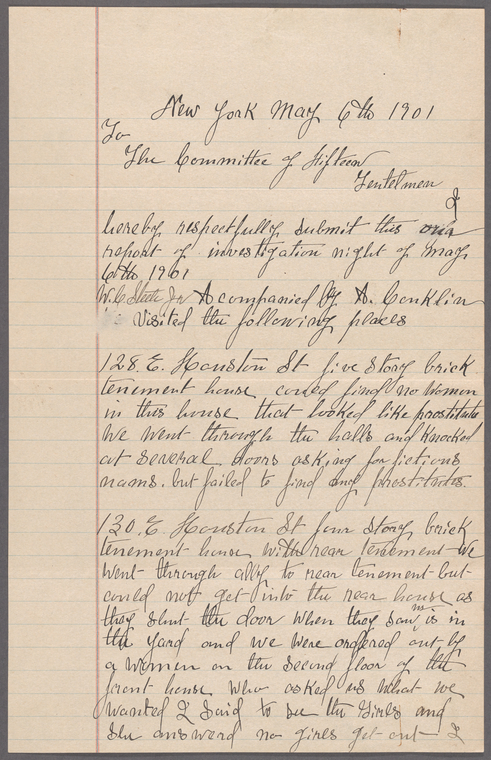 New York May 6th 1901
To
The Committee of Fifteen
Gentelmen
I
hereby respectfully submit this our
report of investigation night of May
6th 1901
W. C. Steele Jr Acompanied by A. Conklin
Visited the following places
128. E. Houston St five story brick
tenement house could find no women
in this house that looked like prostitute
We went through the halls and knocked
at several doors asking for fictious
nams. but failed to find any prostitutes.
130. E. Houston St four story brick
tenement house with rear tenement We
went through ally to rear tenement but
could not get into the rear house as
they shut the door when they saw us in
the yard and we were ordered out by
a women on the second floor of the
front house who asked us what we
wanted I said to see the girls and
she answerd no girls get out I